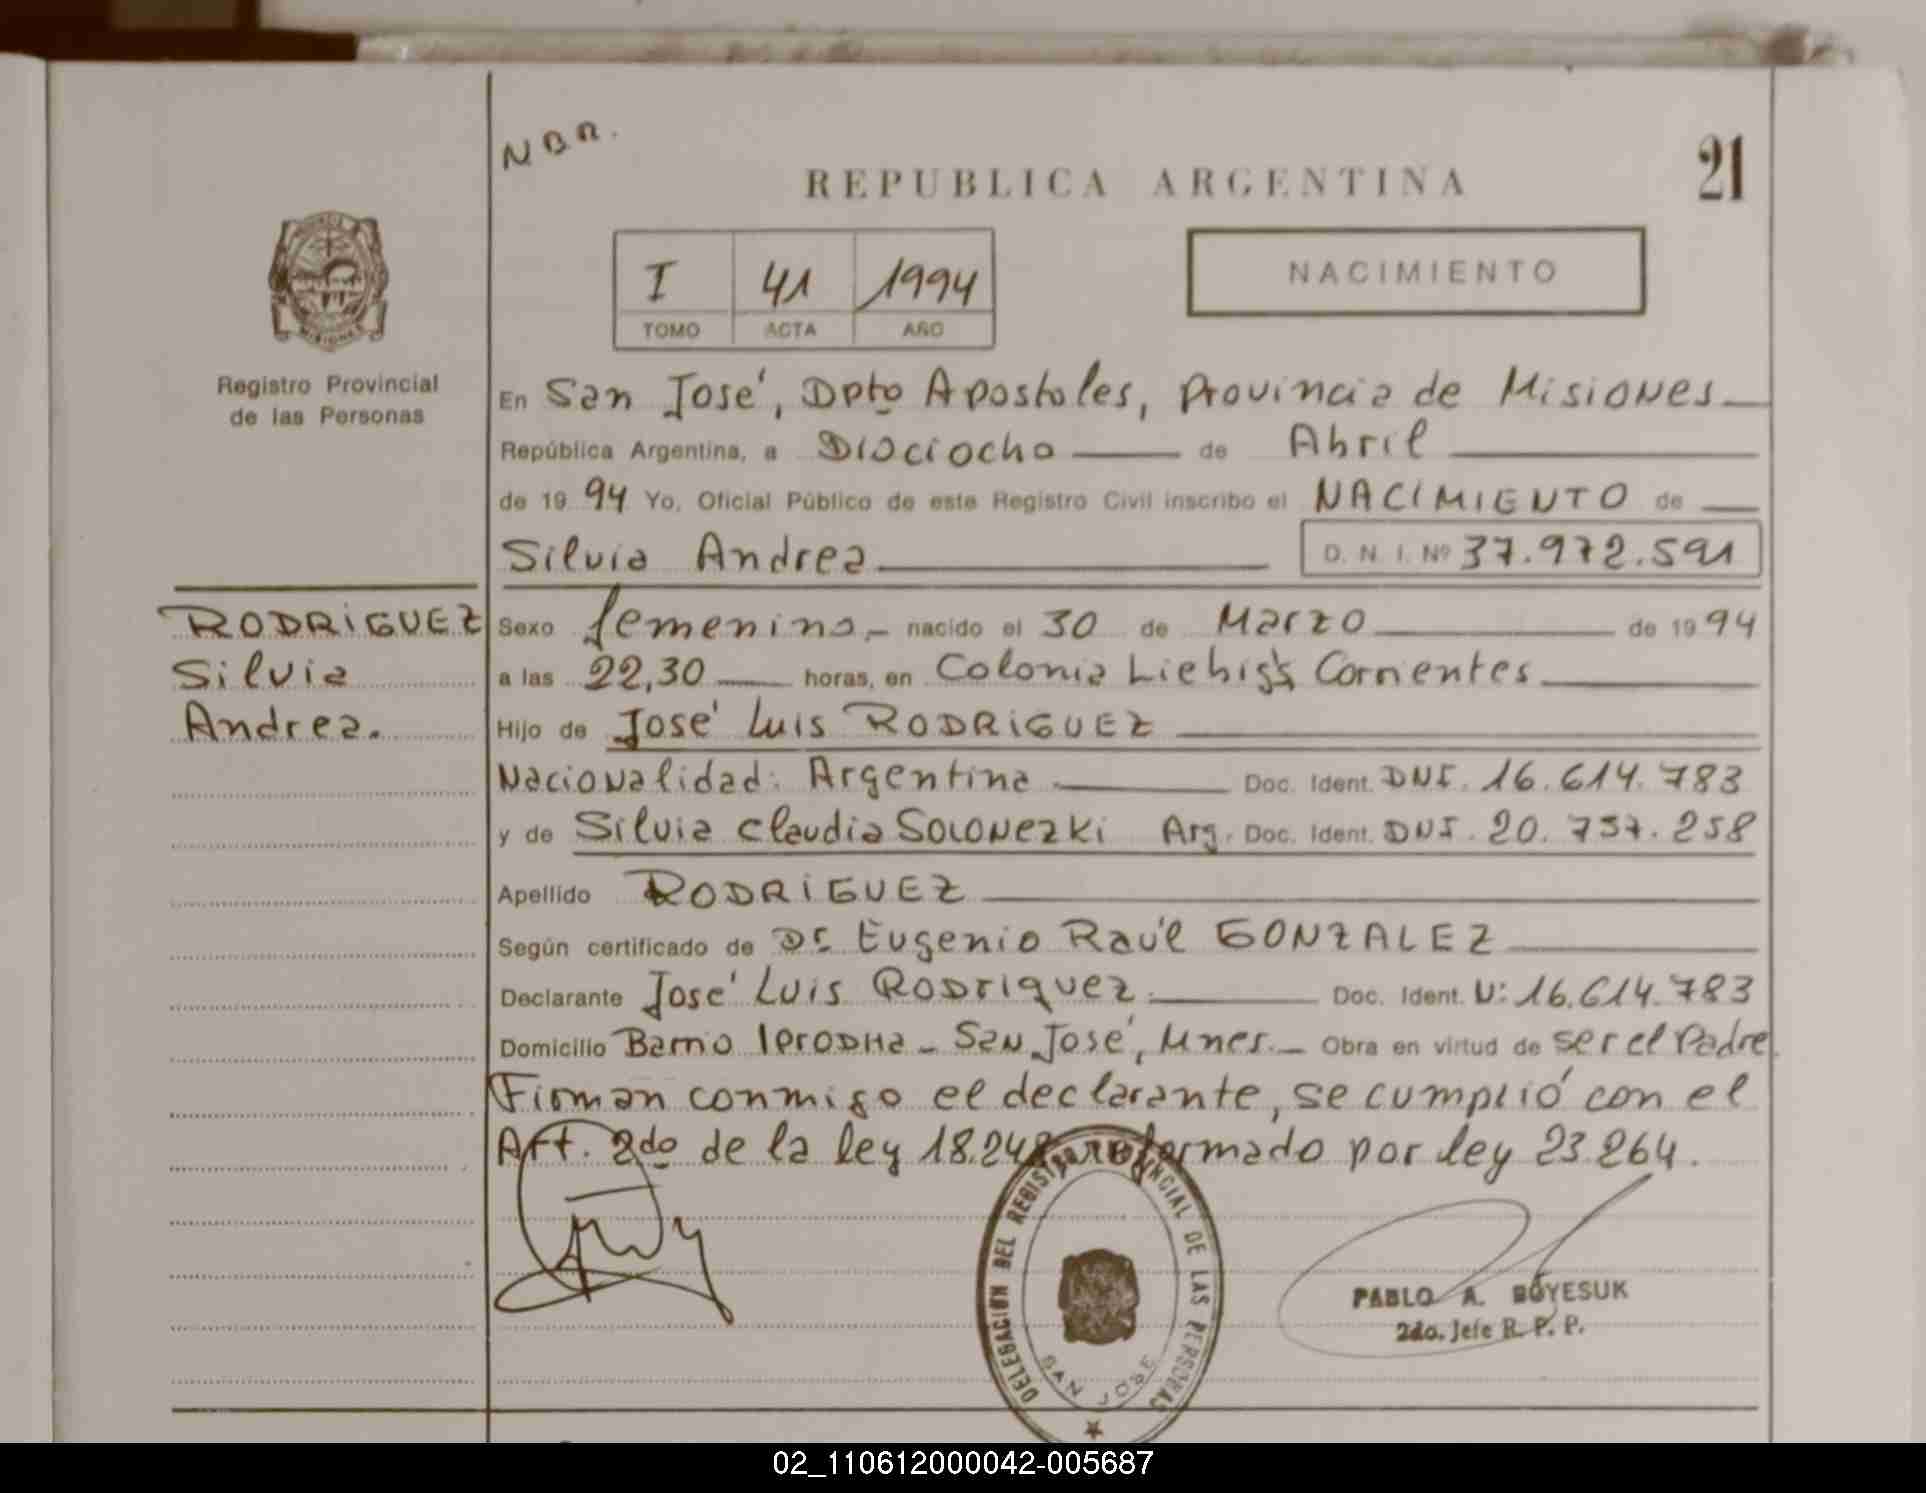 N B R.
REPUBLICA ARGENTINA
21
I 41 1994
TOMO ACTA AÑO
NACIMIENTO
MISIONES
Registro Provincial
de las Personas
En San José, Dpto Apostoles, Provincia de Misiones
República Argentina, a Dieciocho de Abril
de 1994 Yo, Oficial Público de este Registro Civil inscribo el NACIMIENTO de
Silvia Andrea D. N. I. Nº 37.972.591
RODRIGUEZ
Silvia
Andrea.
Sexo femenino.- nacido el 30 de Marzo de 1994
a las 22,30 horas, en Colonia Liebig's Corrientes
Hijo de José Luis RODRIGUEZ
Nacionalidad: Argentina Doc. Ident. DNI. 16.614.783
y de Silvia Claudia SOLONEZKI Arg. Doc. Ident. DNI. 20.757.258
Apellido RODRIGUEZ
Según certificado de Dr. Eugenio Raúl GONZALEZ
Declarante José Luis Rodriguez. Doc. Ident. N: 16.614.783
Domicilio Barrio Iprodha - San José, Mnes.- Obra en virtud de ser el Padre.
Firman conmigo el declarante, se cumplió con el
Art. 2do de la ley 18.248 reformado por ley 23.264.
DELEGACIÓN DEL REGISTRO PROVINCIAL DE LAS PERSONAS
SAN JOSE
PABLO A. BOYESUK
2do. Jefe R. P. P.
02_110612000042-005687